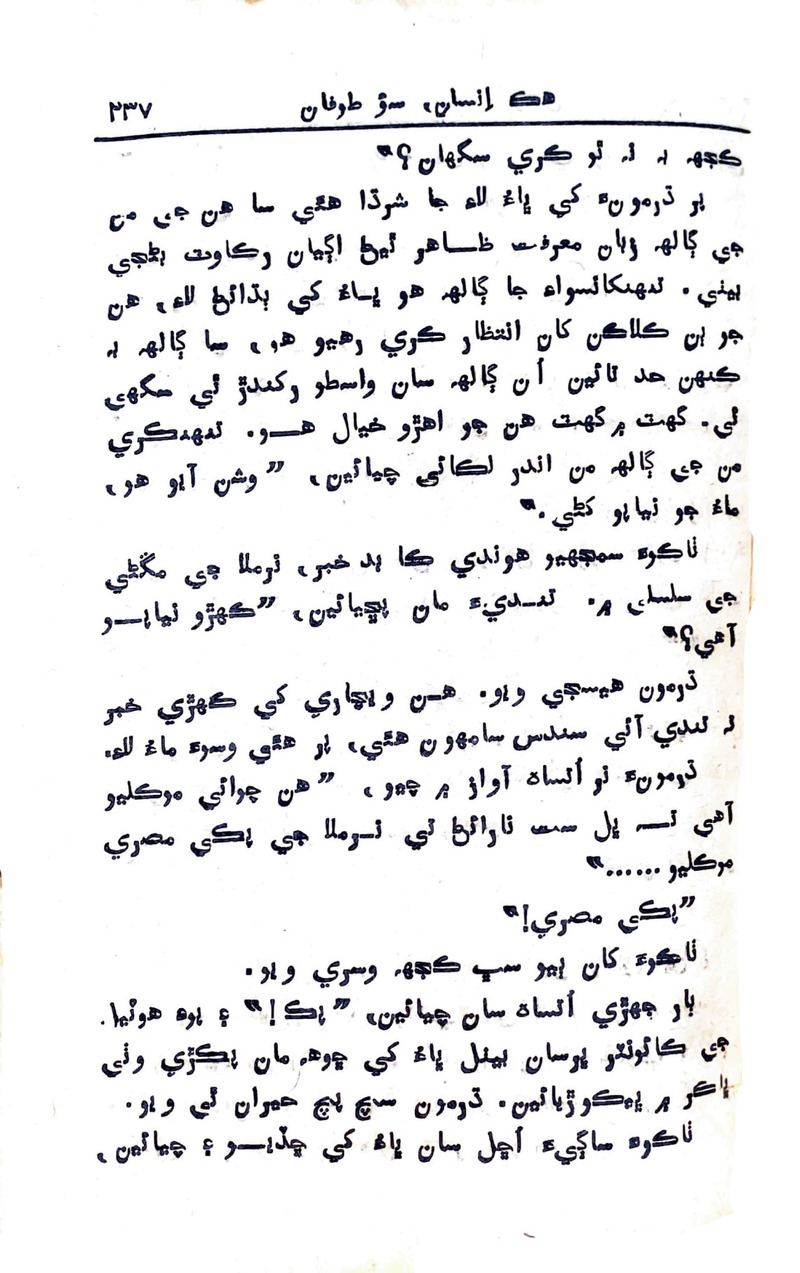 هڪ إنسان، سؤ طوفان ٢٣٧
ڪجهہ بہ نہ ٿو ڪري سگهان؟"
پر ڌرمونءَ کي ڀاءُ لاءِ جا شرڌا هئي سا هن جي من
جي ڳالهہ زبان معرفت ظاهر ٿيڻ اڳيان رڪاوٽ بڻجي
بيٺي. تنهنکانسواءِ جا ڳالهہ هو ڀاءُ کي ٻڌائڻ لاءِ، هن
جو ٻن ڪلاڪن کان انتظار ڪري رهيو هو، سا ڳالهہ بہ
ڪنهن حد تائين اُن ڳالهہ سان واسطو رکندڙ ٿي سگهي
ٿي. گهٽ ۾ گهٽ هن جو اهڙو خيال هو. تنهنڪري
من جي ڳالهہ من اندر لڪائي چيائين، ”وشن آيو هو،
ماءُ جو نياپو کڻي."
ٺاڪوءَ سمجهيو هوندي ڪا بد خبر، نرملا جي مڱڻي
جي سلسلي ۾. تنديءَ مان پڇيائين، ”ڪهڙو نياپو
آهي؟"
ڌرمون هيسجي ويو. هن ويچاري کي ڪهڙي خبر
تہ تندي آئي سندس سامهون هئي، پر هئي وسوءَ ماءُ لاءِ.
ڌرمونءَ نو اُتساهہ آواز ۾ چيو، ”هن چوائي موڪليو
آهي تہ ڀل ست نارائڻ تي نرملا جي پڪي مصري
موڪليو......"
”پڪي مصري!"
ٺاڪوءَ کان ٻيو سڀ ڪجهہ وسري ويو.
ٻار جهڙي اُتساهہ سان چيائين، ”پڪ!" ۽ پوءِ هوٽيا.
جي ڪائونٽر ڀرسان بيٺل ڀاءُ کي چوهہ مان پڪڙي وٺي
ڀاڪر ۾ ڀيڪوڙيائين. ڌرمون سچ پچ حيران ٿي ويو.
ٺاڪوءَ ساڳيءَ اُڇل سان ڀاءُ کي ڇڏيو ۽ چيائين،